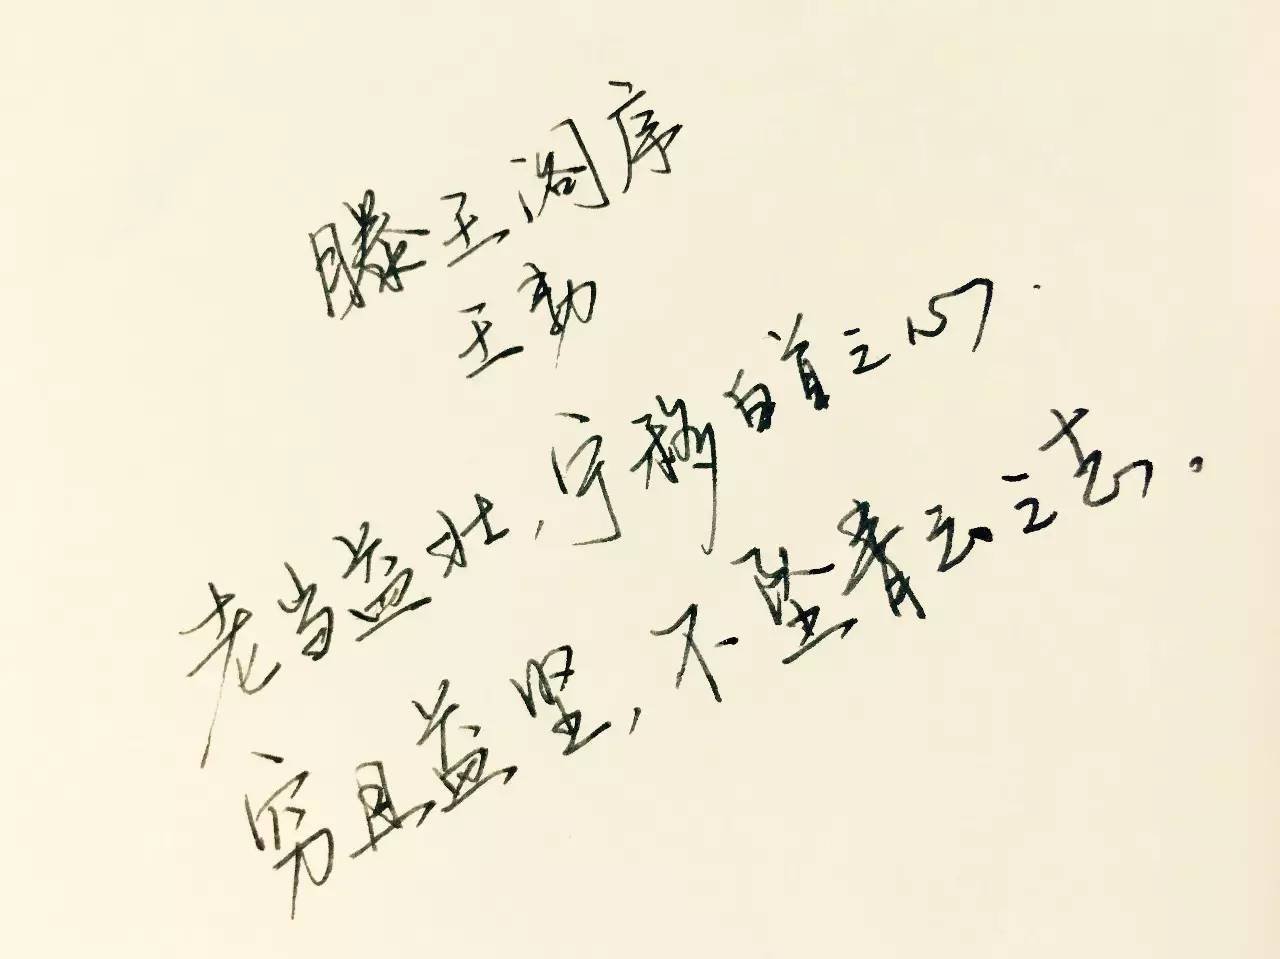 滕王阁序
王勃
老当益壮,宁移白首之心.
穷且益坚,不坠青云之志.